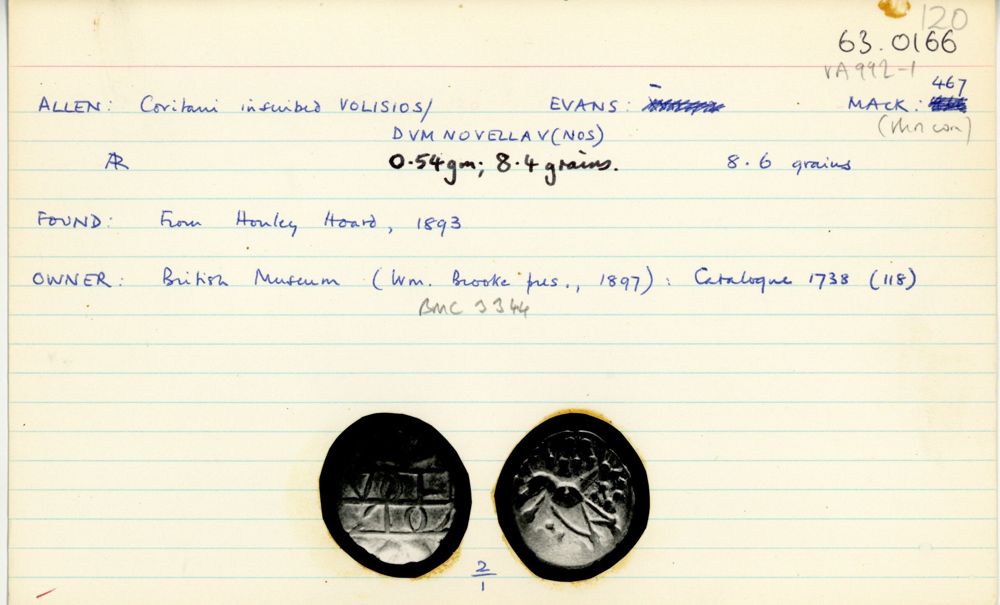 120
63.0166
VA 992-1
467
ALLEN: Coritani inscribed VOLISIOS/ EVANS: – MACK:
DVMNOVELLAV(NOS) (this coin)
AR 0.54gm; 8.4 grains. 8.6 grains
FOUND: From Honley Hoard, 1893
OWNER: British Museum (Wm. Brooke pres., 1897): Catalogue 1738 (118)
BMC 3344
VOLI
SIO
2
1